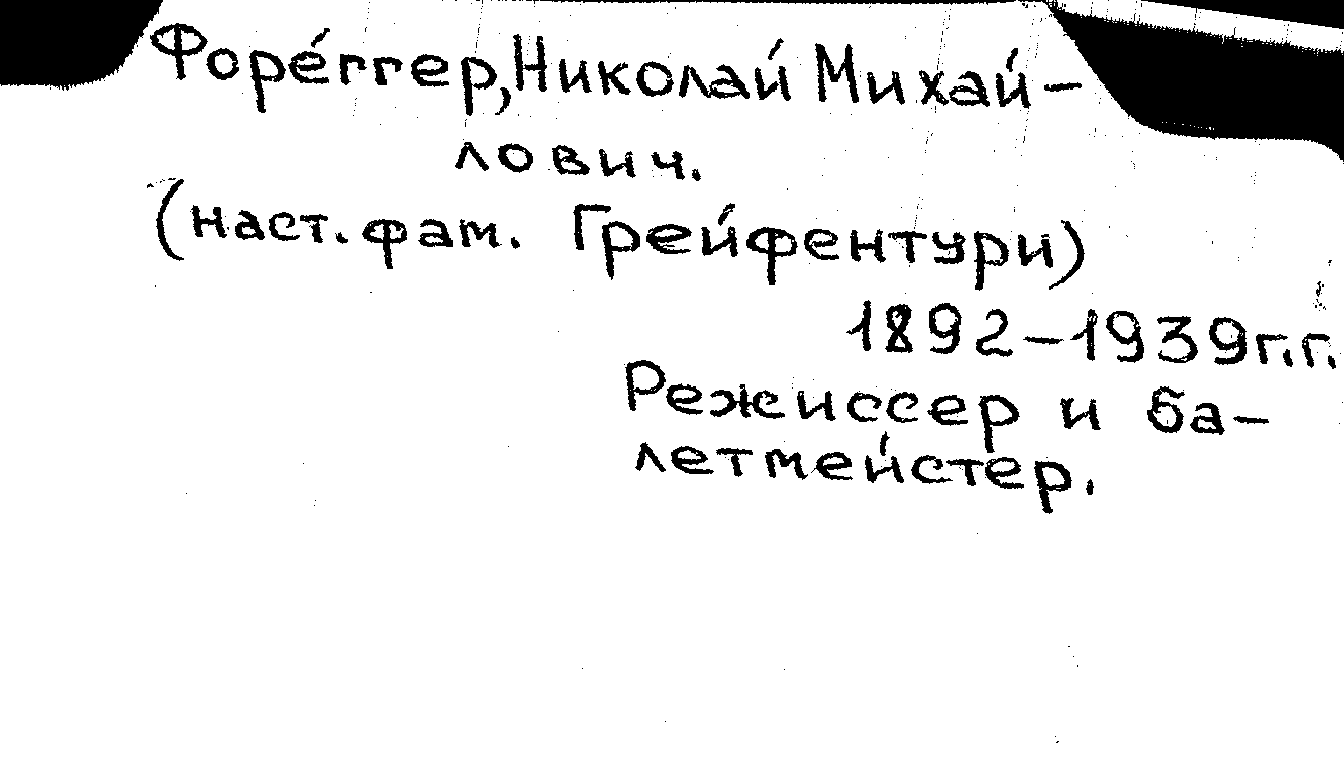 Форе́ггер, Николай Михай-
лович.
(наст. фам. Грейфентури)
1892-1939г.г.
Режиссер и ба-
летмейстер.